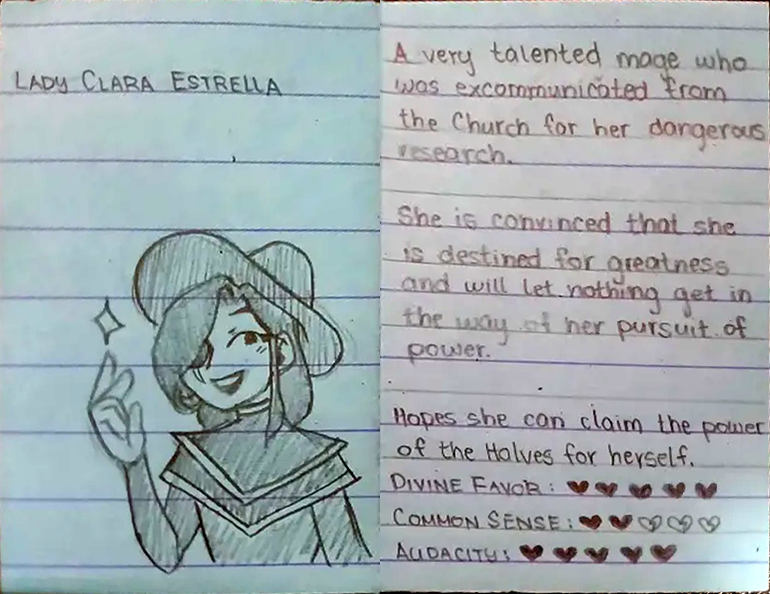 LADY CLARA ESTRELLA
A very talented mage who
was excommunicated from
the Church for her dangerous
research.
She is convinced that she
is destined for greatness
and will let nothing get in
the way of her pursuit of
power.
Hopes she can claim the power
of the Halves for herself.
DIVINE FAVOR: ♥♥♥♥♥
COMMON SENSE: ♥♥♡♡♡
AUDACITY: ♥♥♥♥♥